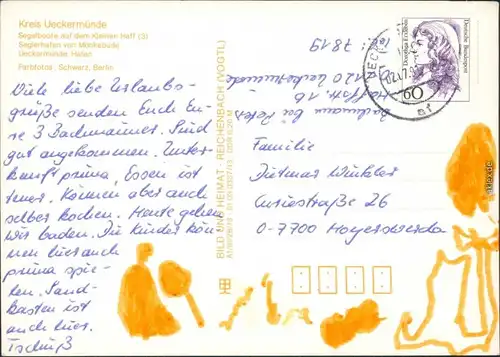 Kreis Ueckermünde
Segelboote auf dem Kleinen Haff (3)
Seglerhafen von Mönkebude
Ueckermünde: Hafen
Farbfotos: Schwarz, Berlin
Viele liebe Urlaubs-
grüße senden Euch Eu-
re 3 Bachmänner. Sind
gut angekommen. Unter-
kunft prima, Essen ist
teuer. Können aber auch
selber kochen. Heute gehen
wir baden. Die Kinder kön-
nen hier auch
prima spie-
len. Sand-
kasten ist
auch hier.
Tschüß
BILD UND HEIMAT REICHENBACH (VOGTL)
Tel.: 7819
2120 Ueckermünde
Haffstr. 16
Bachmann bei Peters
Deutsche Bundespost
60
Familie
Dietmar Winkler
Curiestraße 26
O-7700 Hoyerswerda
akpool.de